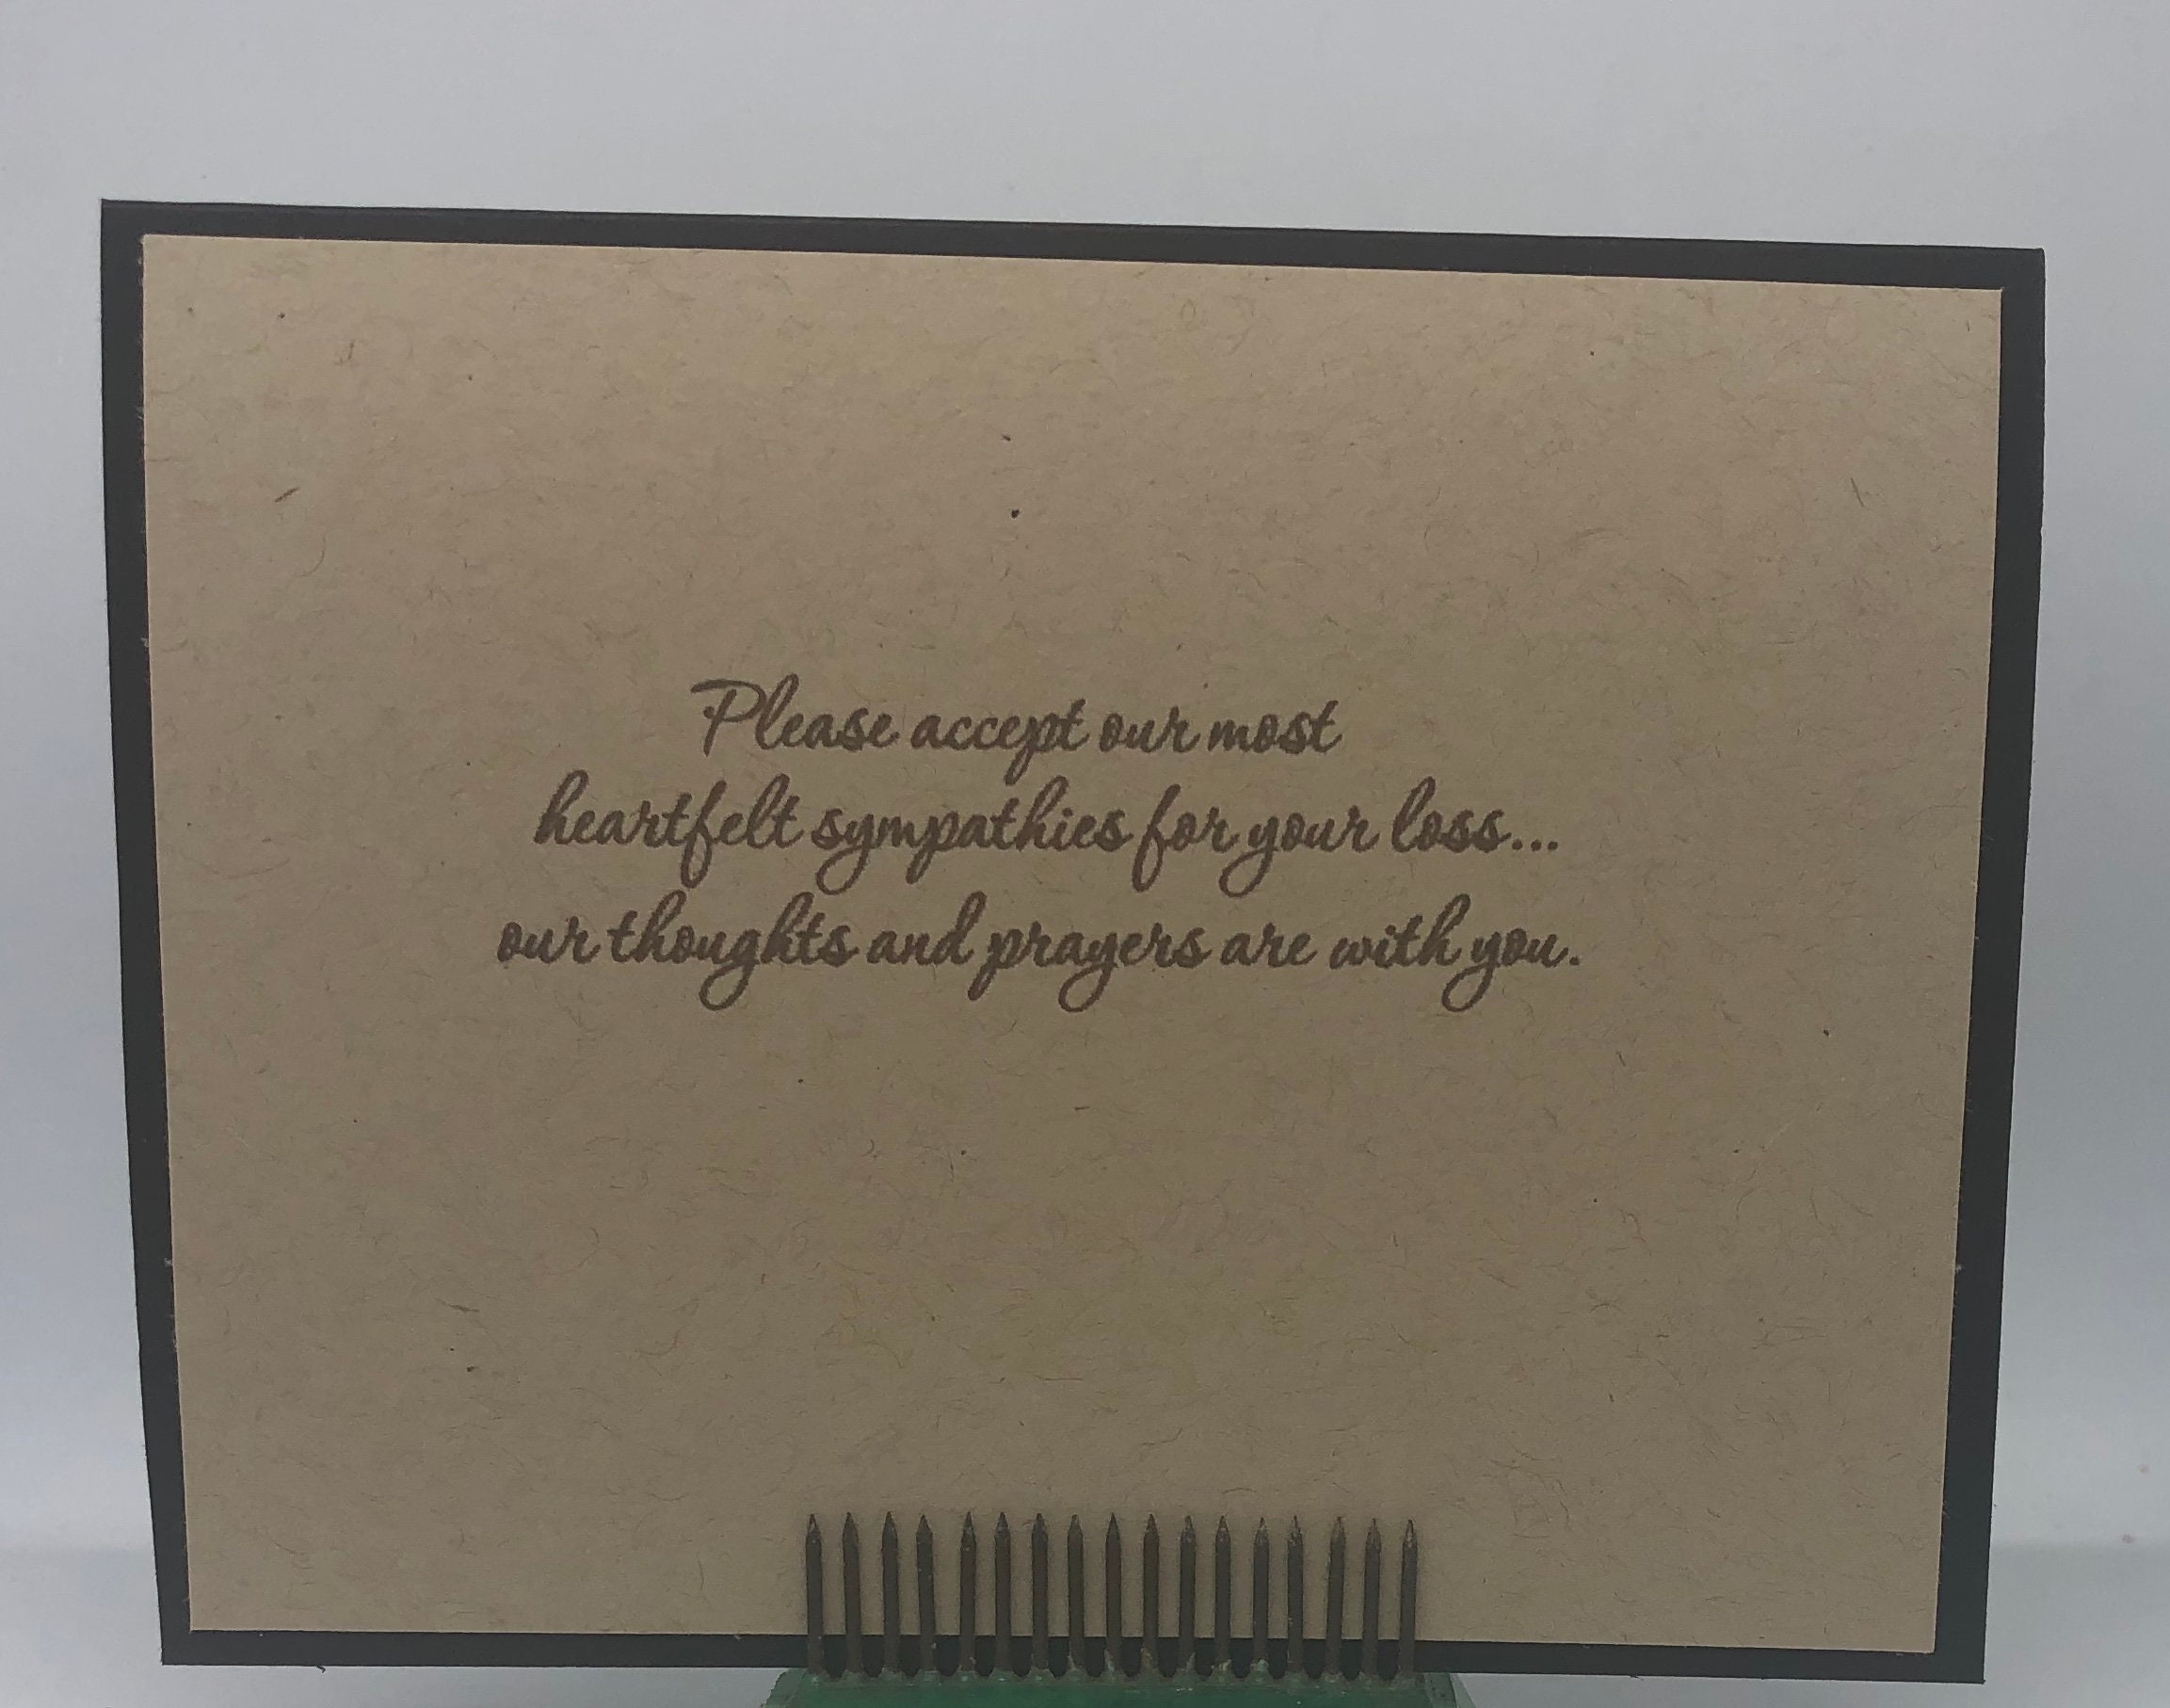 Please accept our most
heartfelt sympathies for your loss...
our thoughts and prayers are with you.